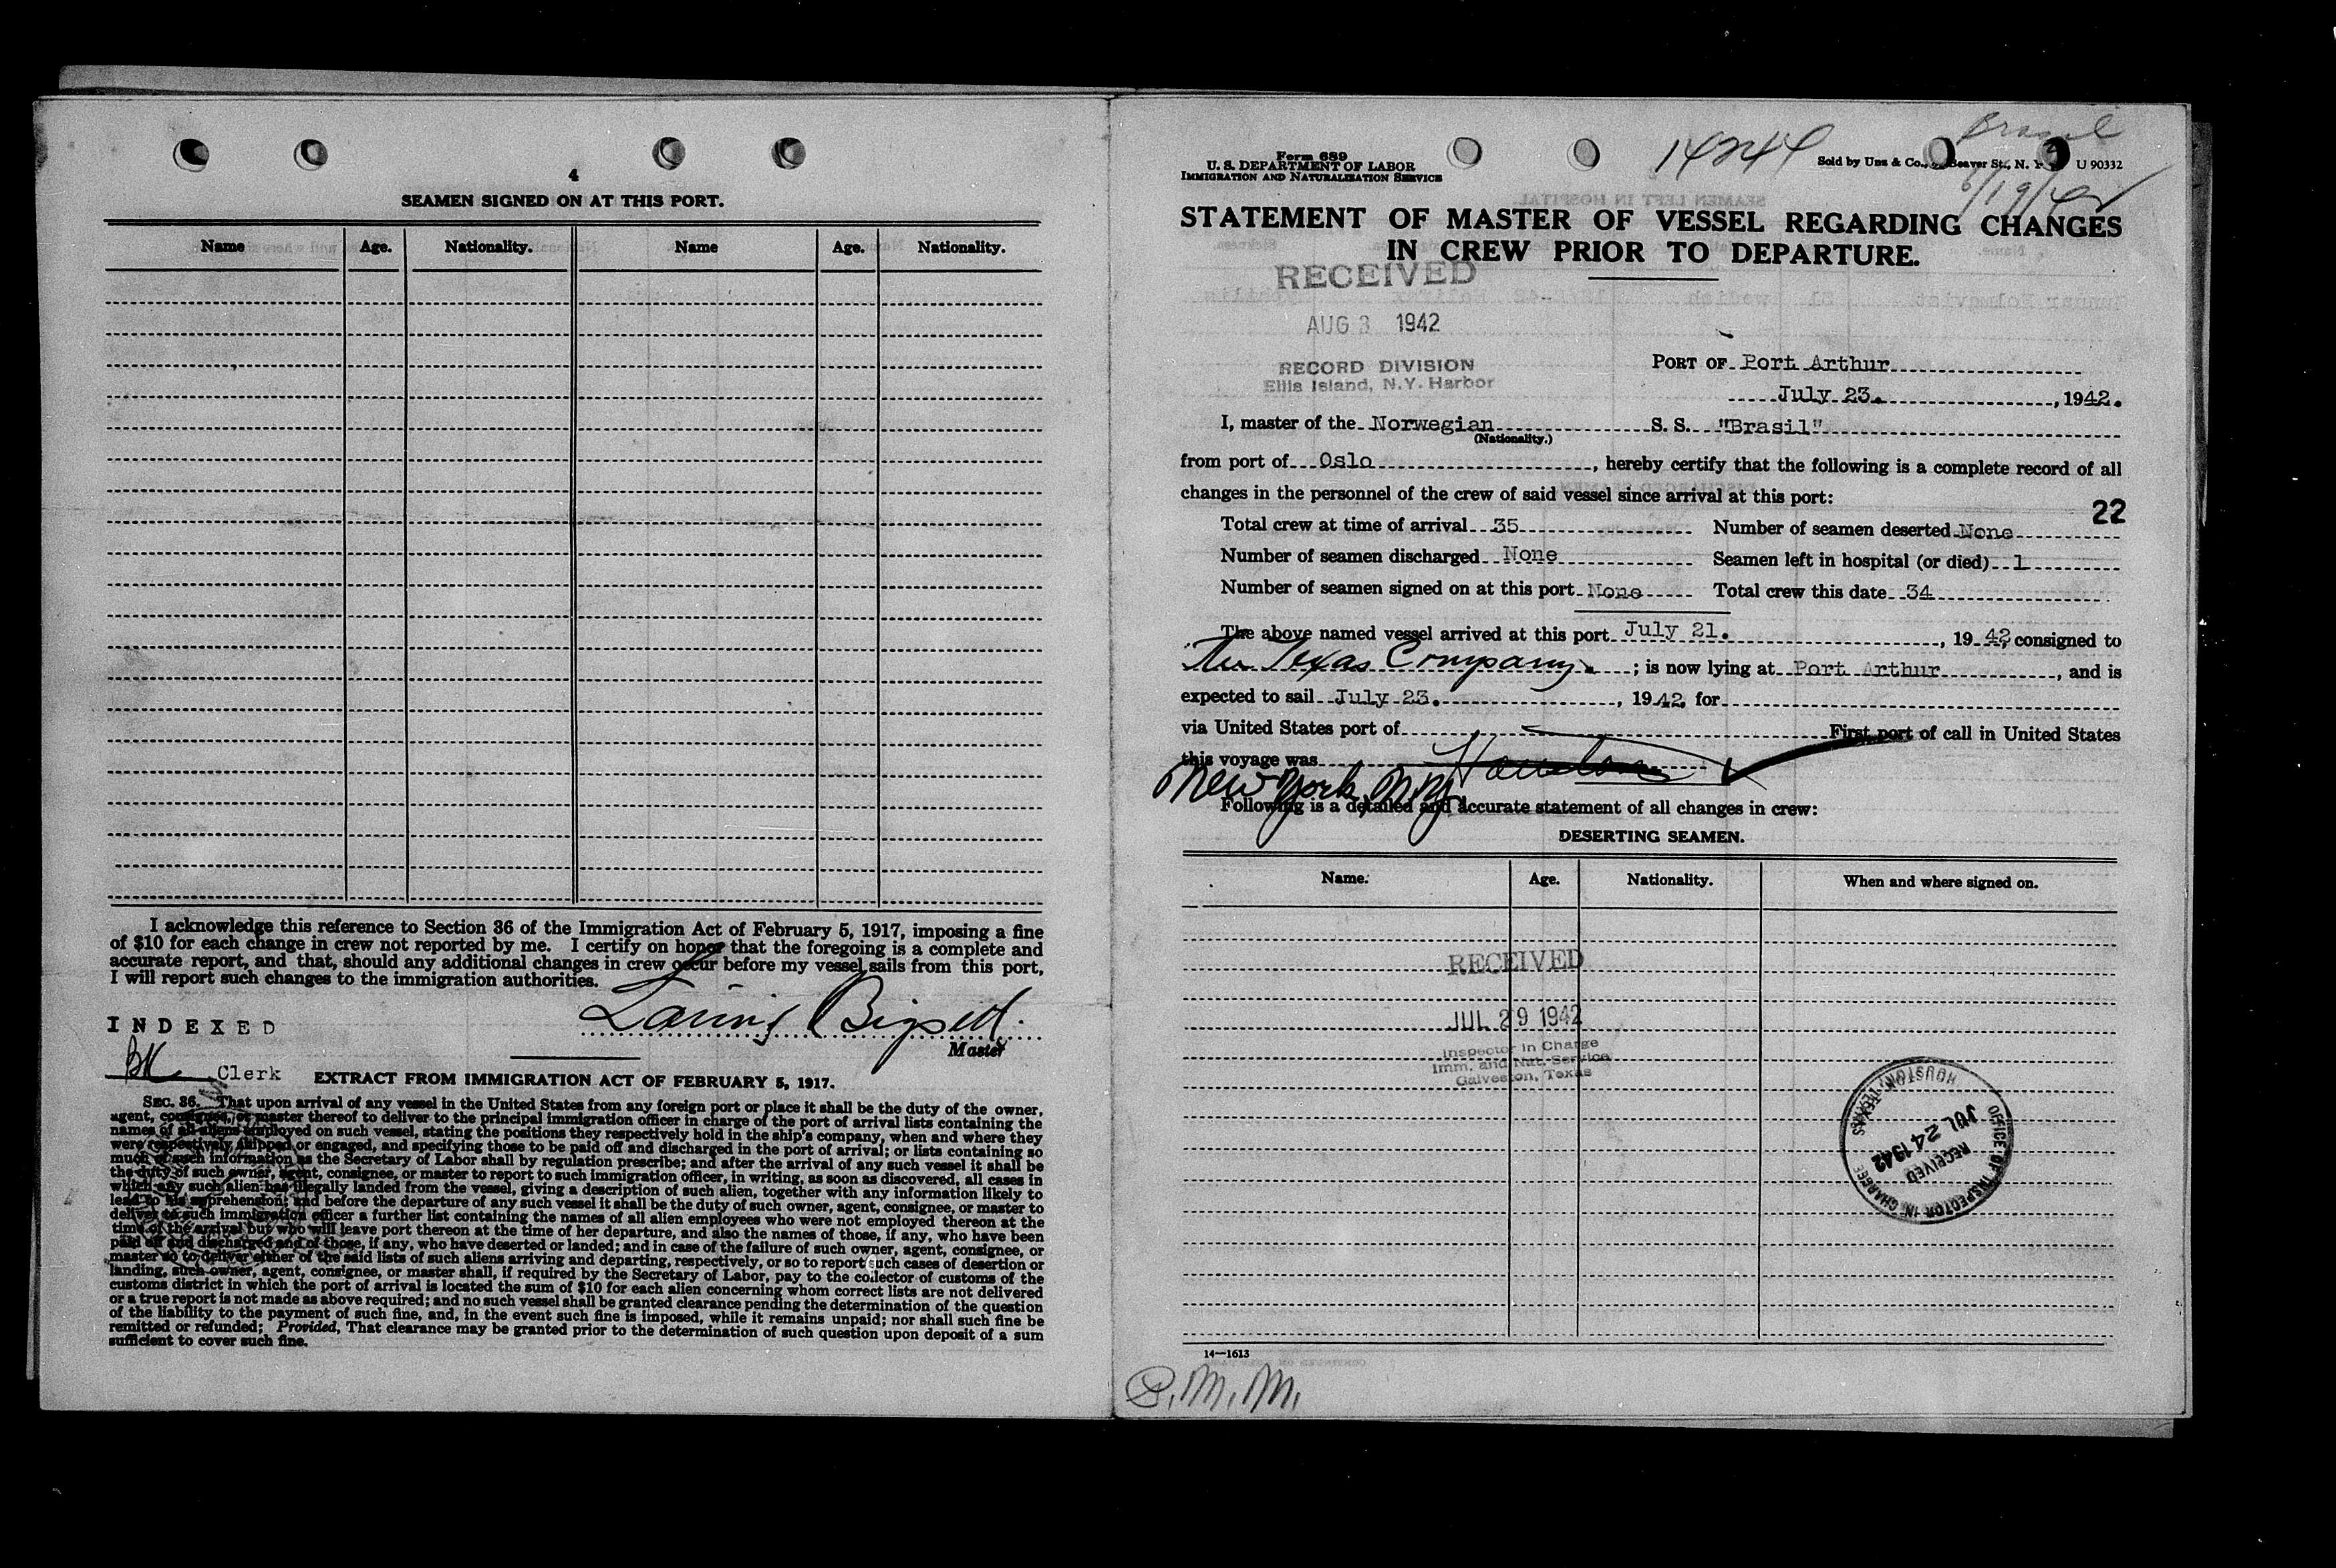 4
SEAMEN SIGNED ON AT THIS PORT.
Name Age. Nationality. Name Age. Nationality.
I acknowledge this reference to Section 36 of the Immigration Act of February 5, 1917, imposing a fine
of $10 for each change in crew not reported by me. I certify on honor that the foregoing is a complete and
accurate report, and that, should any additional changes in crew occur before my vessel sails from this port,
I will report such changes to the immigration authorities.
INDEXED
Master
BK Clerk
EXTRACT FROM IMMIGRATION ACT OF FEBRUARY 5, 1917.
SEC. 36. That upon arrival of any vessel in the United States from any foreign port or place it shall be the duty of the owner,
agent, consignee, or master thereof to deliver to the principal immigration officer in charge of the port of arrival lists containing the
names of all aliens employed on such vessel, stating the positions they respectively hold in the ship's company, when and where they
were respectively shipped or engaged, and specifying those to be paid off and discharged in the port of arrival; or lists containing so
much of such information as the Secretary of Labor shall by regulation prescribe; and after the arrival of any such vessel it shall be
the duty of such owner, agent, consignee, or master to report to such immigration officer, in writing, as soon as discovered, all cases in
which any such alien has illegally landed from the vessel, giving a description of such alien, together with any information likely to
lead to his apprehension; and before the departure of any such vessel it shall be the duty of such owner, agent, consignee, or master to
deliver to such immigration officer a further list containing the names of all alien employees who were not employed thereon at the
time of the arrival but who will leave port thereon at the time of her departure, and also the names of those, if any, who have been
paid off and discharged and of those, if any, who have deserted or landed; and in case of the failure of such owner, agent, consignee, or
master so to deliver either of the said lists of such aliens arriving and departing, respectively, or so to report such cases of desertion or
landing, such owner, agent, consignee, or master shall, if required by the Secretary of Labor, pay to the collector of customs of the
customs district in which the port of arrival is located the sum of $10 for each alien concerning whom correct lists are not delivered
or a true report is not made as above required; and no such vessel shall be granted clearance pending the determination of the question
of the liability to the payment of such fine, and, in the event such fine is imposed, while it remains unpaid; nor shall such fine be
remitted or refunded; Provided, That clearance may be granted prior to the determination of such question upon deposit of a sum
sufficient to cover such fine.
Brasil
Form 689
U. S. DEPARTMENT OF LABOR
IMMIGRATION AND NATURALIZATION SERVICE
14244
Sold by Unz & Co., Beaver St., N. Y. U 90332
6/19/42
STATEMENT OF MASTER OF VESSEL REGARDING CHANGES
IN CREW PRIOR TO DEPARTURE.
RECEIVED
AUG 3 1942
RECORD DIVISION
Ellis Island, N.Y. Harbor
PORT OF Port Arthur
July 23. , 1942.
I, master of the Norwegian S. S. "Brasil"
(Nationality.)
from port of Oslo , hereby certify that the following is a complete record of all
changes in the personnel of the crew of said vessel since arrival at this port:
22
Total crew at time of arrival 35 Number of seamen deserted None
Number of seamen discharged None Seamen left in hospital (or died) 1
Number of seamen signed on at this port None Total crew this date 34
The above named vessel arrived at this port July 21. , 19 42, consigned to
The Texas Company. ; is now lying at Port Arthur , and is
expected to sail July 23. , 1942, for
via United States port of First port of call in United States
this voyage was Houston
New York, N.Y.
Following is a detailed and accurate statement of all changes in crew:
DESERTING SEAMEN.
Name. Age. Nationality. When and where signed on.
RECEIVED
JUL 29 1942
Inspector in Charge
Imm. and Nat. Service
Galveston, Texas
OFFICE OF INSPECTOR IN CHARGE
RECEIVED
JUL 24 1942
HOUSTON, TEXAS
14—1613
P.M.M.